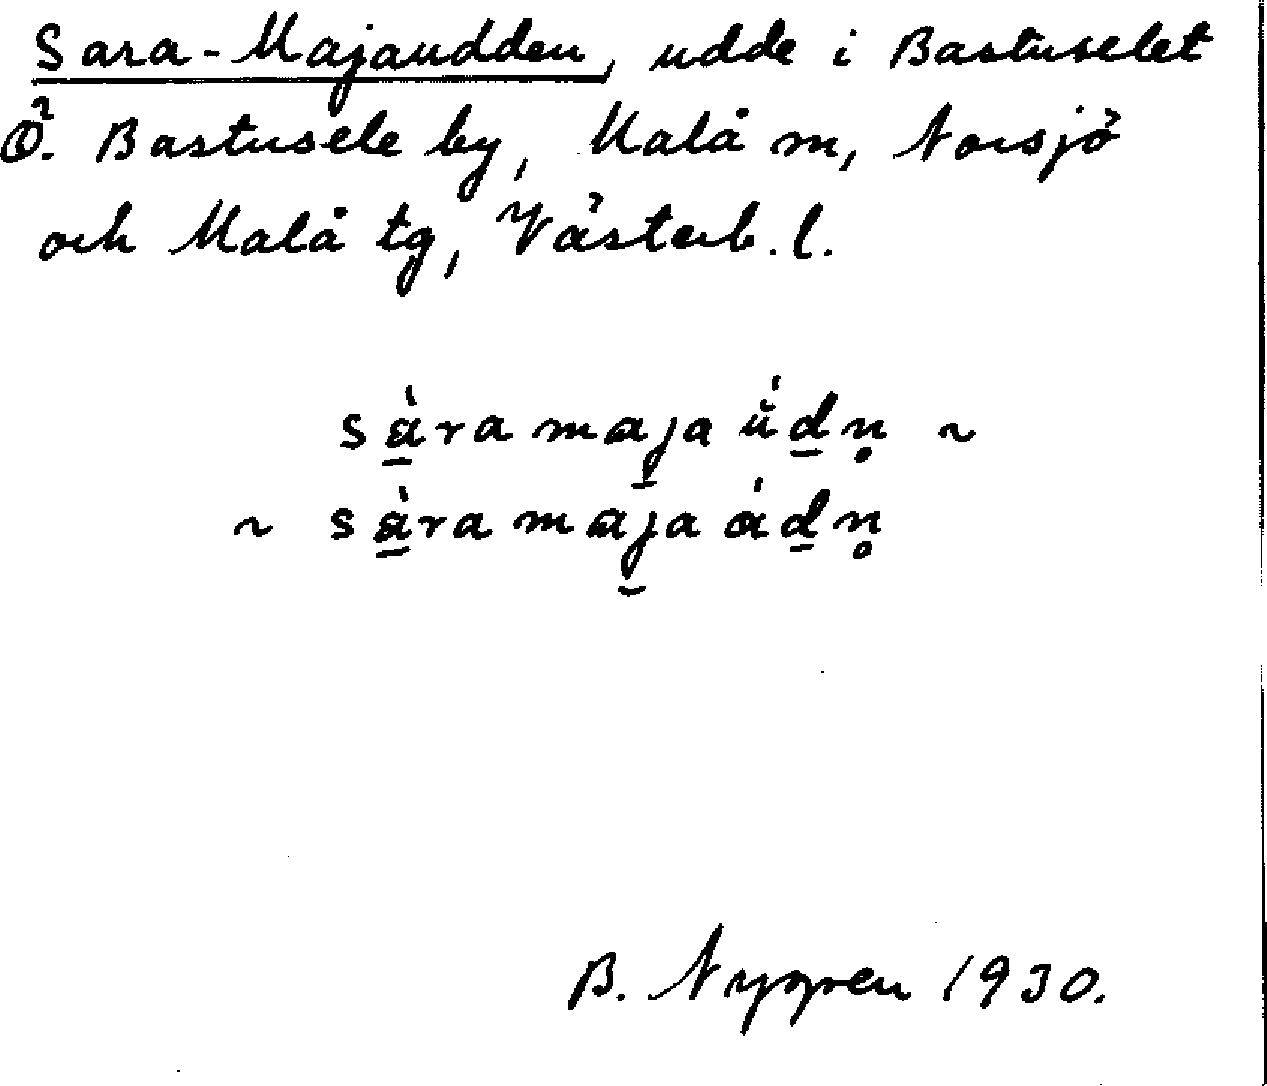 Sara-Majaudden, udde i Bastuselet
Ö. Bastusele by, Malå m, Norsjö
och Malå tg, Västerb. l.
sa̠̍̀ramaj̮a ŭ̍d̠n̥ ~
~ sa̠̍̀ramaj̮a a̍d̠n̥
B. Nygren 1930.